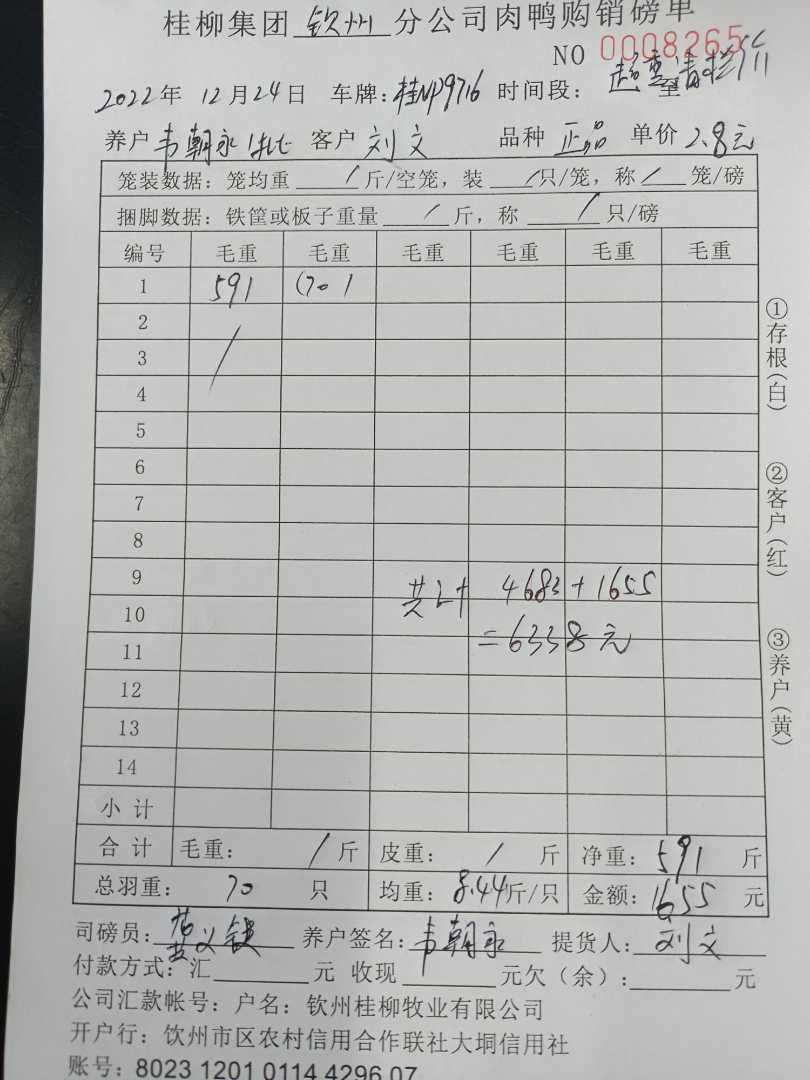 桂柳集团 钦州 分公司肉鸭购销磅单
NO 0008265
2022年 12月24日 车牌:桂NP9716 时间段: 至
养户 韦朝永 客户 刘文 品种 正品 单价 2.8元
笼装数据: 笼均重 / 斤/空笼, 装 / 只/笼, 称 / 笼/磅
捆脚数据: 铁筐或板子重量 / 斤, 称 / 只/磅
编号 毛重 毛重 毛重 毛重 毛重 毛重
1 591 (70)
2
3 /
4
5
6
7
8
9 共计 4683+1655
10 =6338元
11
12
13
14
小计
合计 毛重: / 斤 皮重: / 斤 净重: 591 斤
总羽重: 70 只 均重: 8.44斤/只 金额: 1655 元
司磅员: 养户签名: 韦朝永 提货人: 刘文
付款方式: 汇 元 收现 元欠(余): 元
公司汇款帐号: 户名: 钦州桂柳牧业有限公司
开户行: 钦州市区农村信用合作联社大垌信用社
账号: 8023 1201 0114 4296 07
①存根(白)
②客户(红)
③养户(黄)